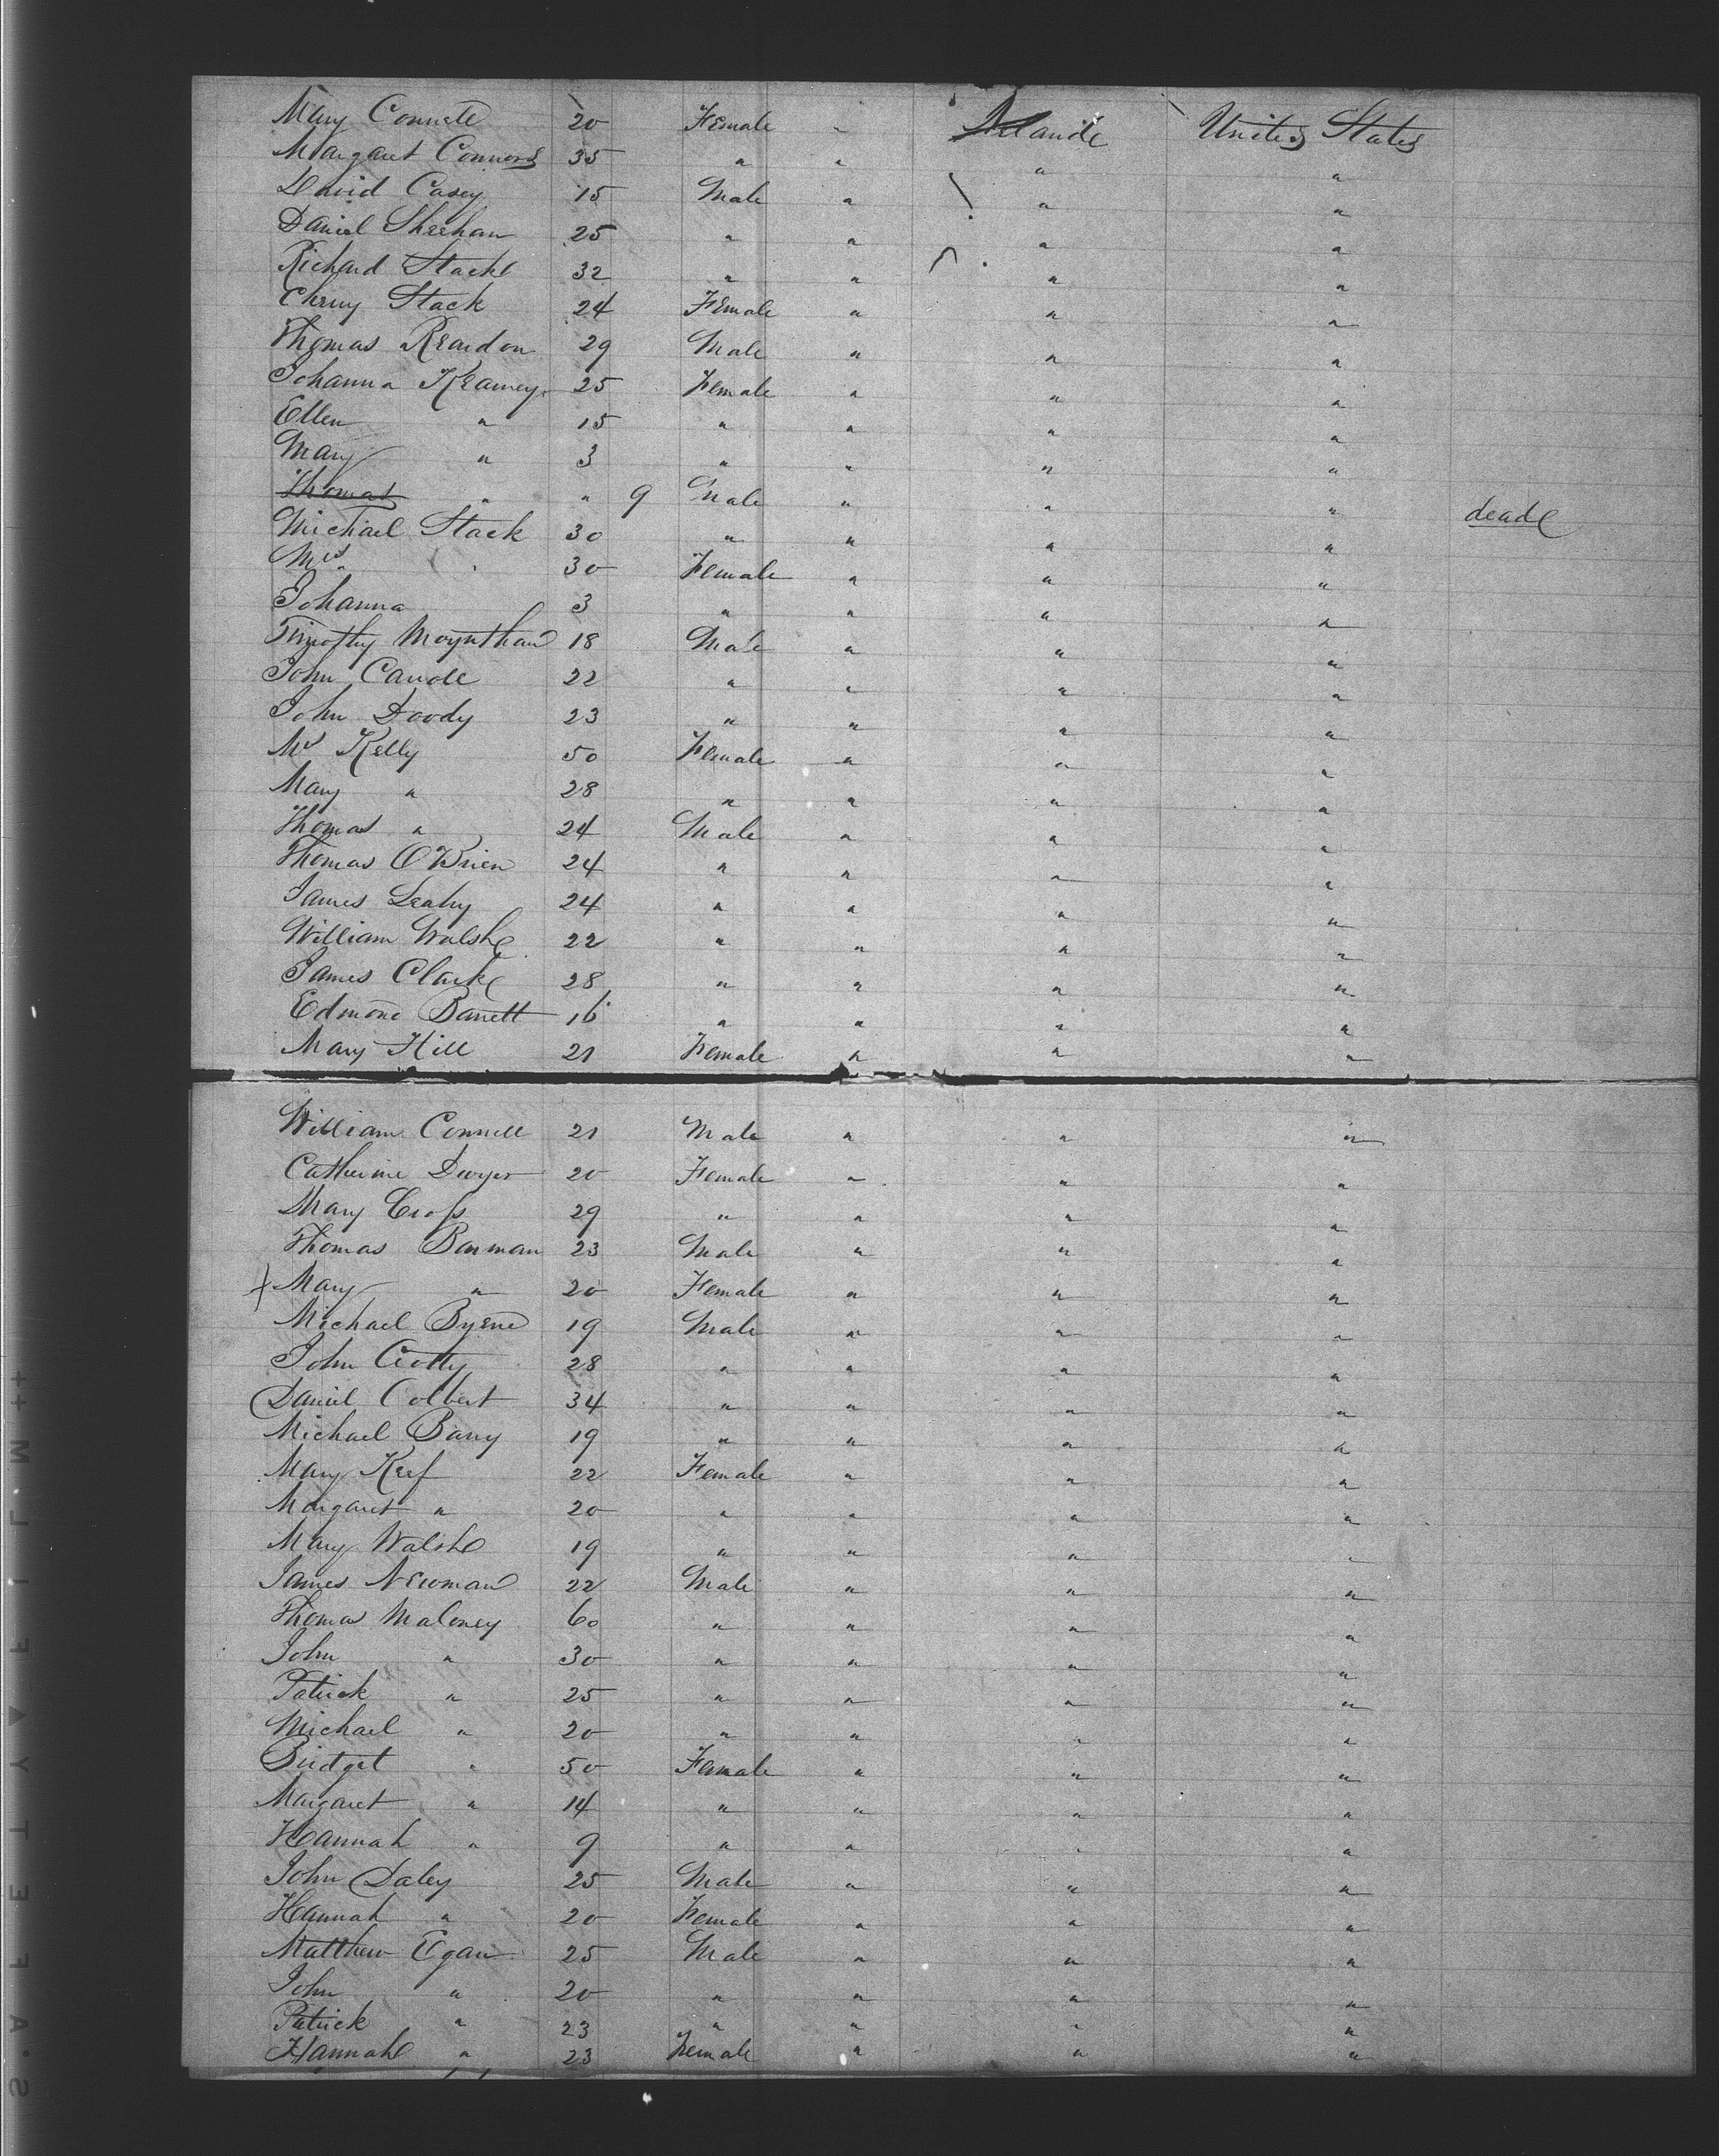 Mary Connell 20 Female " Irlande United States
Margaret Connors 35 " " " "
David Casey 15 Male " " "
Daniel Sheehan 25 " " " "
Richard Stack 32 " " " "
Stack 24 Female " " "
Thomas Reardon 29 Male " " "
Johanna Kearney 25 Female " " "
Ellen " 15 " " " "
Mary " 3 " " " "
Thomas " " 9 Male " " " dead
Michael Stack 30 " " " "
Mrs " 30 Female " " "
Johanna 3 " " " "
Timothy Moynihan 18 Male " " "
John Carroll 22 " " " "
John Doody 23 " " " "
Mrs Kelly 50 Female " " "
Mary " 28 " " " "
Thomas " 24 Male " " "
Thomas O'Brien 24 " " " "
James Leahy 24 " " " "
William Walsh 22 " " " "
James Clark 28 " " " "
Edmond Barrett 16 " " " "
Mary Hill 21 Female " " "
William Connell 21 Male " " "
Catherine Dwyer 20 Female " " "
Mary Cross 29 " " " "
Thomas 23 Male " " "
+ Mary " 20 Female " " "
Michael Byrne 19 Male " " "
John Crotty 28 " " " "
Daniel Colbert 34 " " " "
Michael Barry 19 " " " "
Mary Keef 22 Female " " "
Margaret " 20 " " " "
Mary Walsh 19 " " " "
James Newman 22 Male " " "
Thomas Maloney 60 " " " "
John " 30 " " " "
Patrick " 25 " " " "
Michael " 20 " " " "
Bridget " 50 Female " " "
Margaret " 14 " " " "
Hannah " 9 " " " "
John Daley 25 Male " " "
Hannah " 20 Female " " "
Matthew Egan 25 Male " " "
John " 20 " " " "
Patrick " 23 " " " "
Hannah " 23 Female " " "